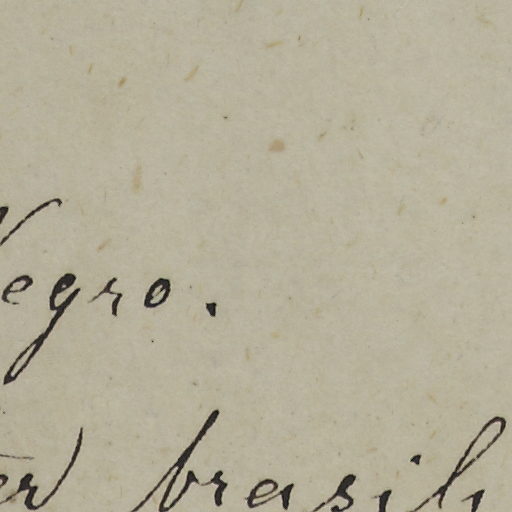 Negro.
er brasili